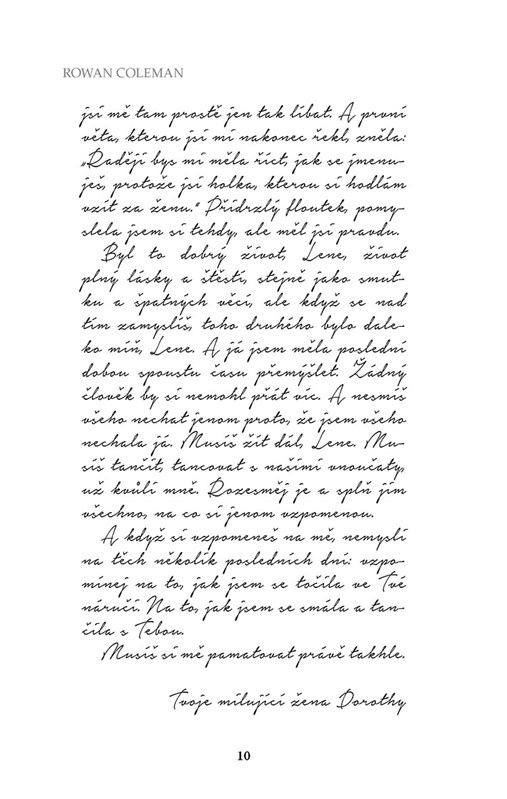 ROWAN COLEMAN
jsi mě tam prostě jen tak líbat. A první
věta, kterou jsi mi nakonec řekl, zněla:
„Raději bys mi měla říct, jak se jmenu-
ješ, protože jsi holka, kterou si hodlám
vzít za ženu.“ Přidrzlý floutek, pomy-
slela jsem si tehdy, ale měl jsi pravdu.
Byl to dobrý život, Lene, život
plný lásky a štěstí, stejně jako smut-
ku a špatných věcí, ale když se nad
tím zamyslíš, toho druhého bylo dale-
ko míň, Lene. A já jsem měla poslední
dobou spoustu času přemýšlet. Žádný
člověk by si nemohl přát víc. A nesmíš
všeho nechat jenom proto, že jsem všeho
nechala já. Musíš žít dál, Lene. Mu-
síš tančit, tancovat s našimi vnoučaty,
už kvůli mně. Rozesměj je a splň jim
všechno, na co si jenom vzpomenou.
A když si vzpomeneš na mě, nemysli
na těch několik posledních dní: vzpo-
mínej na to, jak jsem se točila ve Tvé
náručí. Na to, jak jsem se smála a tan-
čila s Tebou.
Musíš si mě pamatovat právě takhle.
Tvoje milující žena Dorothy
10